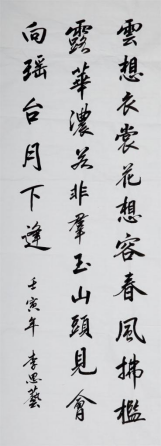 雲想衣裳花想容春風拂檻
露華濃若非羣玉山頭見會
向瑶台月下逢
壬寅年李思藝